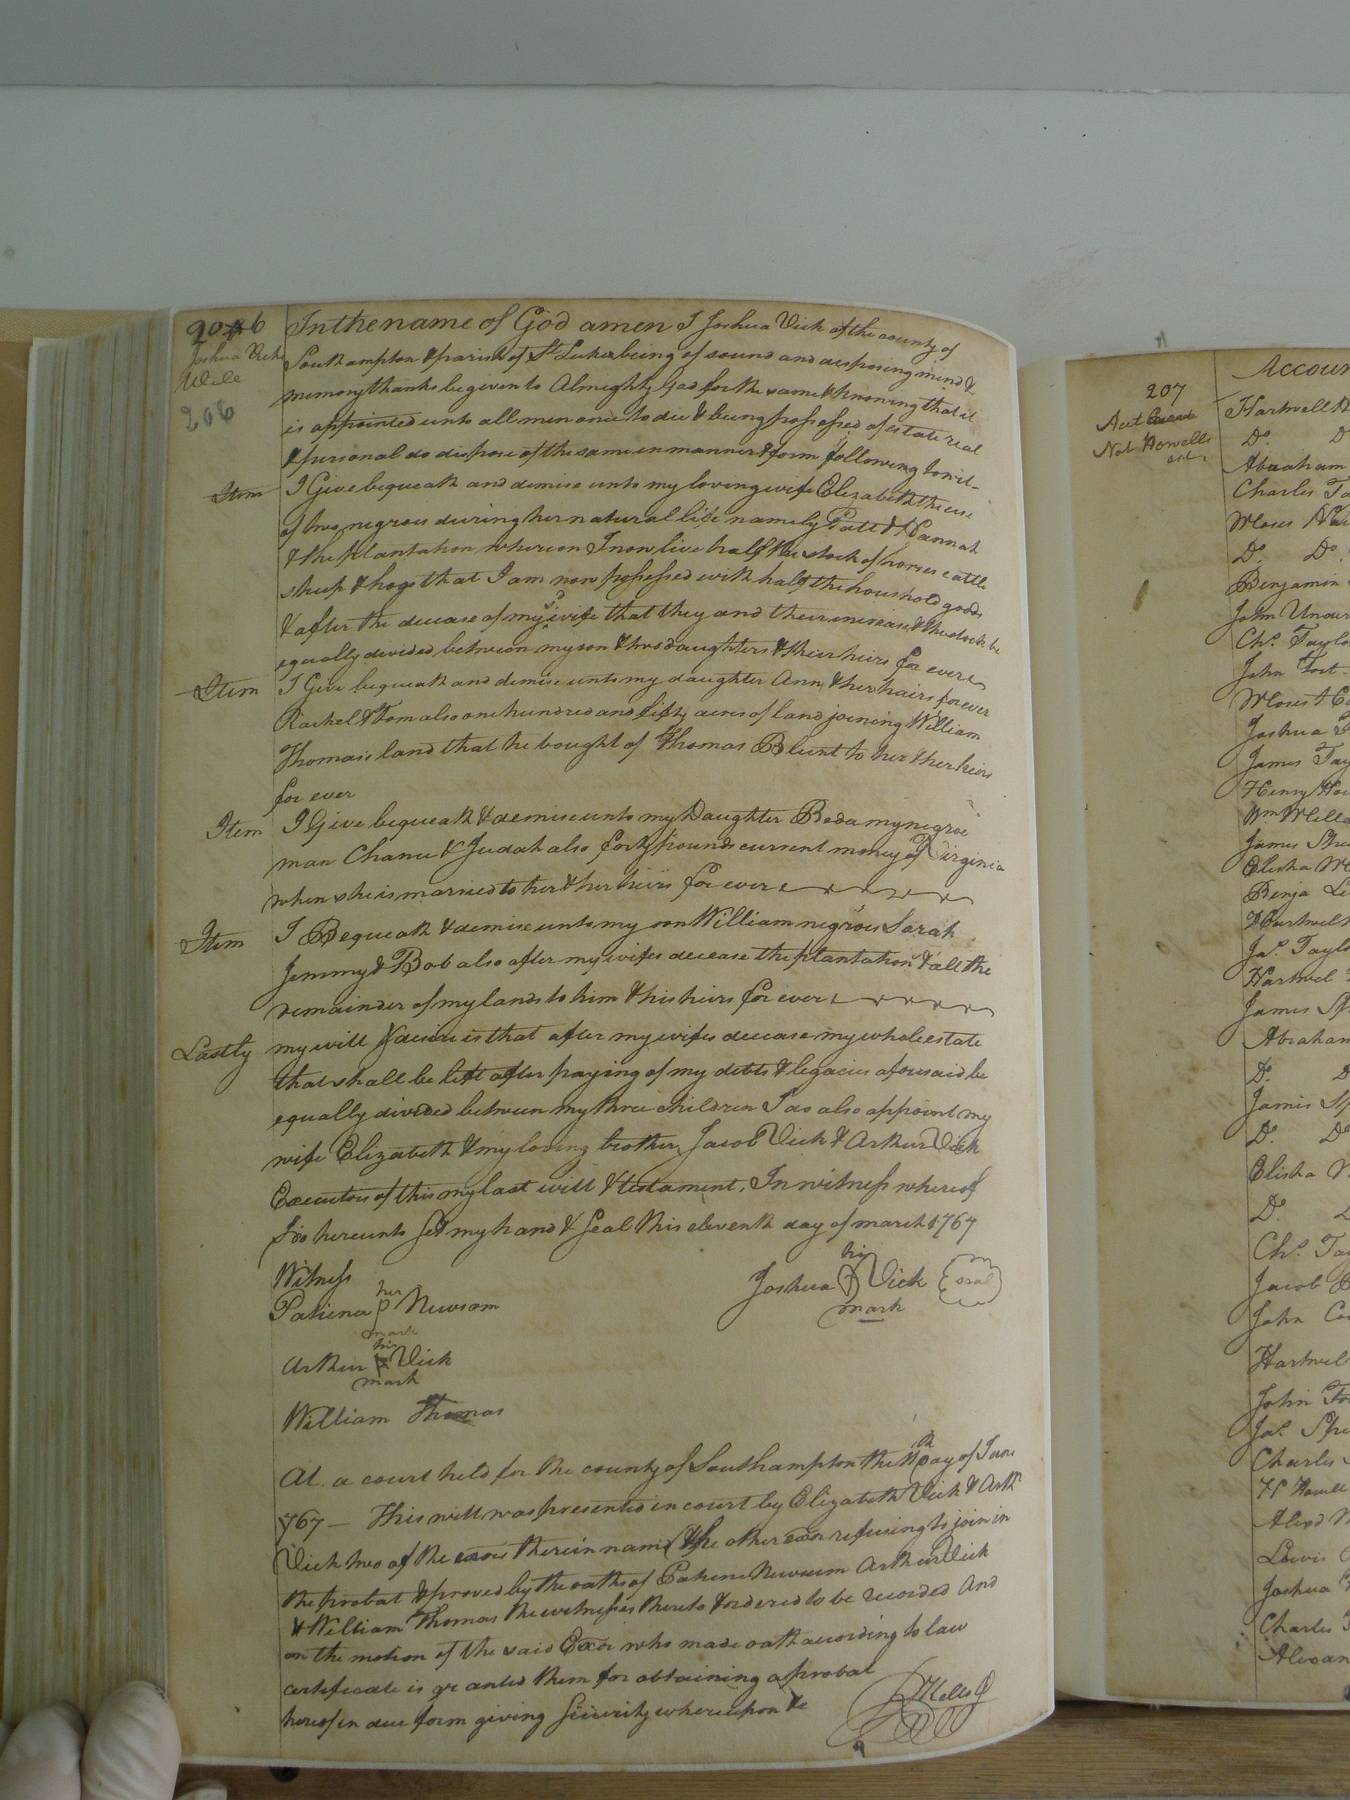 206
Joshua Vick
Will
206
In the name of God amen I Joshua Vick of the county of
Southampton & parish of St. Lukes being of sound and disposing mind &
memory thanks be given to Almighty God for the same & knowing that it
is appointed unto all men once to die & being possessed of estate real
& personal do dispose of the same in manner & form following to wit-
Item I Give bequeath and demise unto my loving wife Elizabeth the use
of two negroes during her natural life namely Patt & Hannah
& the plantation whereon I now live half the stock of horses cattle
sheep & hogs that I am now possessed with half the houshold goods
& after the decease of my sd. wife that they and their increase & the stock be
equally divided between my son & two daughters & their heirs for ever
Item I Give bequeath and demise unto my daughter Ann & her hairs for ever
Rachel & Tom also one hundred and fifty acres of land joining William
Thomas's land that he bought of Thomas Blunt to her & her heirs
for ever
Item I Give bequeath & demise unto my Daughter Beda my negroe
man Chance & Judah also forty pounds current money of Virginia
when she is married to her & her heirs for ever
Item I Bequeath & demise unto my son William negroes Sarah
Jemmy & Bob also after my wifes decease the plantation & all the
remainder of my lands to him & his heirs for ever
Lastly my will & desire is that after my wifes decease my whole estate
that shall be left after paying of my debts & legacies aforesaid be
equally divided between my three children I do also appoint my
wife Elizabeth & my loving brother Jacob Vick & Arthur Vick
Executors of this my last will & testament. In witness whereof
I do hereunto Set my hand & Seal this eleventh day of march 1767
Witness
his
Joshua Vick seal
mark
her
Patience P Newsom
mark
his
Arthur Vick
mark
William Thomas
At a court held for the county of Southampton the 11th Day of June
1767 — This will was presented in court by Elizabeth Vick & Arthr.
Vick two of the exors therein named (the other exor refusing to join in
the probat & proved by the oaths of Patience Newsum Arthur Vick
& William Thomas the witnesses thereto & ordered to be recorded And
on the motion of the said Exor who made oath according to law
certificate is granted them for obtaining a probat
hereof in due form giving Security whereupon &c
207
Acct
Not Howells
est.
Accoun
Hartwell
Do. D
Abraham
Charles Ta
Moses
Do. Do.
Benjamin
John Under
Chs. Taylo
John Fort
Moses
Joshua
James Tay
Henry
Wm
James
Elisha
Benja
Hartwell
Jas. Taylo
Hartwel
James
Abraham
Do. D
James
Do. Do
Elisha
Do.
Chs. Ta
Jacob
John
Hartwel
John
Jas.
Charles
H Howell
Alexd
Lewis
Joshua
Charles
Alexan